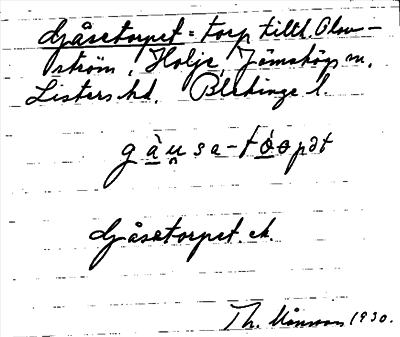 Gåsetorpet = torp tillh. Olow-
ström, Holje, Jämshögs sn,
Listers hd. Blekinge l.
gàu̯sa-tóopət
Gåsetorpet. ek.
Th. 1930.